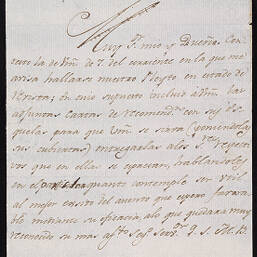 Muy S.r mio y Dueño. Con
la de Vm. de 7. del corriente en la que me
avisa hallarse nuestro Pleyto en estado de
Vista; En cuio supuesto incluio à Vm. las
adjuntas Cartas de recomend.on con sus Es-
quelas para que Vm. se sirva (poniendolas
sus cubiertas) entregarlas alos S.res respecti-
vos que en ella se expresan, hablandoles
en el quanto contemple ser util
al mejor exito del asunto que espero favora-
ble mediante su eficacia, alo que quedará muy
reconocido su mas af.to Seg.o Serv.or Q. S. M. B.